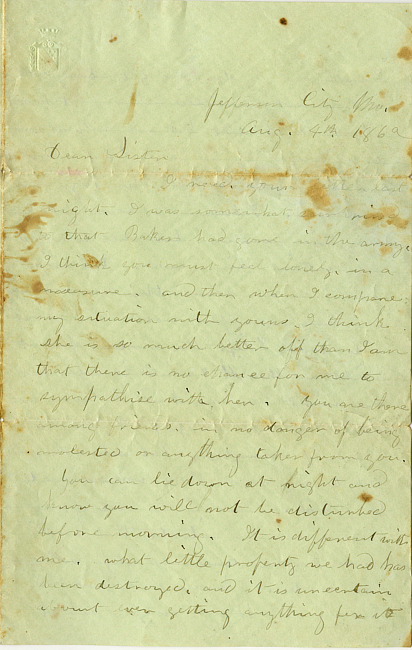 Jefferson City Mo.
Aug. 4th 186
Dear Sister
I yours last
night. I was somewhat
that Baker had gone in the army.
I think you must feel lonely, in a
measure. and then when I compare
my situation with yours I think
she is so much better off than I am
that there is no chance for me to
sympathise with her. You are there
among friends. in no danger of being
molested or anything taken from you.
You can lie down at night and
know you will not be disturbed
before morning. It is different with
me. what little property we had has
been destroyed, and it is uncertain
about ever getting anything for it